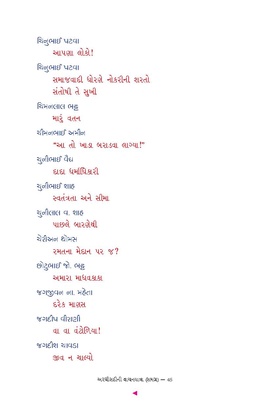 ચિનુભાઈ પટવા
આપણા લોકો!
ચિનુભાઈ પટવા
સમાજવાદી ધોરણે નોકરીની શરતો
સંતોષી તે સુખી
ચિમનલાલ ભટ્ટ
મારું વતન
ચીમનભાઈ અમીન
“આ તો ખાડા બરાડવા લાગ્યા!”
ચુનીભાઈ વૈદ્ય
દાદા ધર્માધિકારી
ચુનીભાઈ શાહ
સ્વતંત્રતા અને સીમા
ચુનીલાલ વ. શાહ
પાછલે બારણેથી
ચેરિઅન થોમસ
રમતના મેદાન પર જ?
છોટુભાઈ જો. ભટ્ટ
અમારા માધવકાકા
જગજીવન ના. મહેતા
દરેક માણસ
જગદીપ વીરાણી
વા વા વંટોળિયા!
જગદીશ ચાવડા
જીવ ન ચાલ્યો
અરધી સદીની વાચનયાત્રા